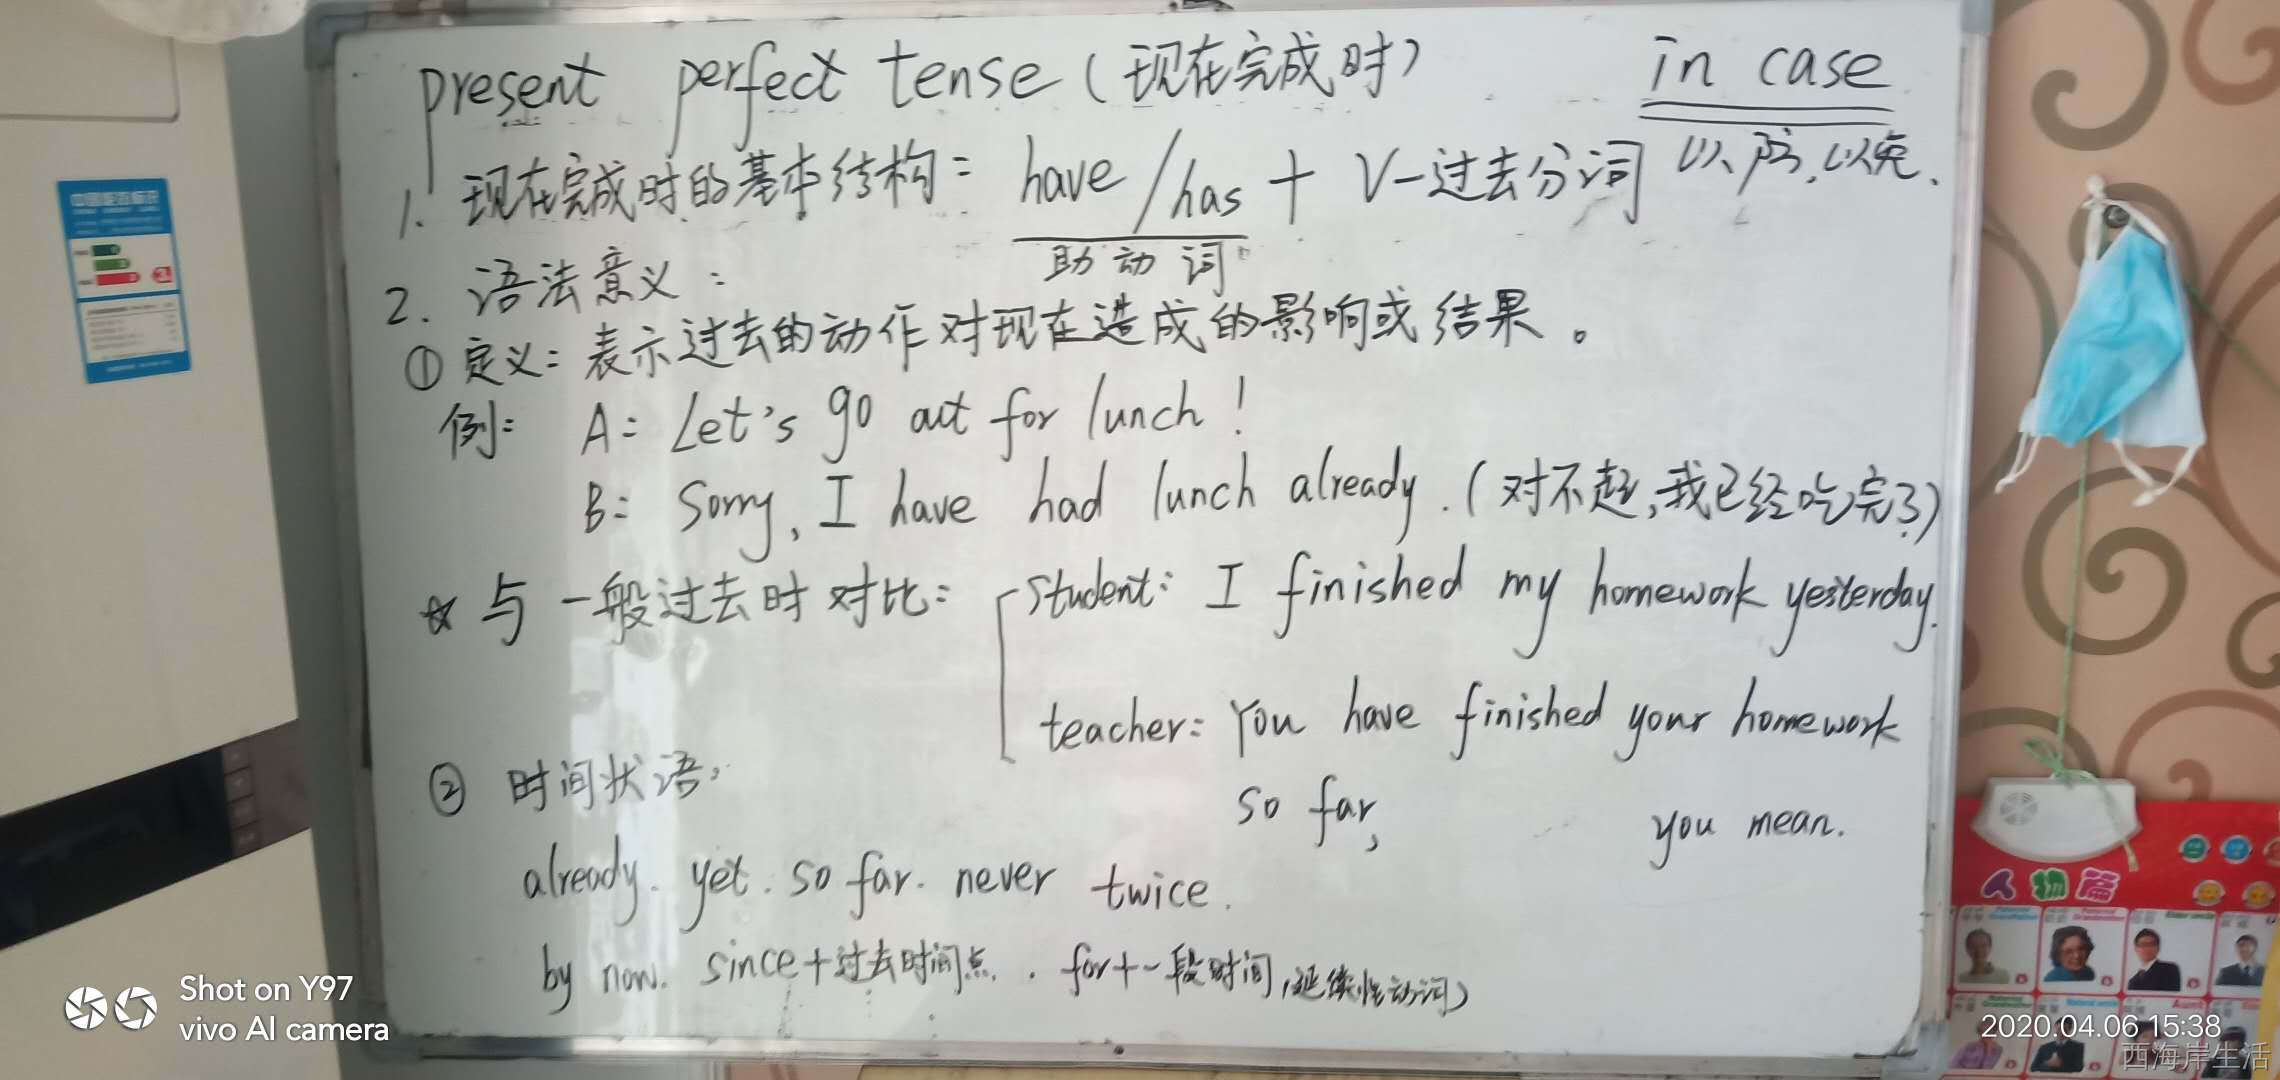 present perfect tense (现在完成时)
in case
以防,以免.
1. 现在完成时的基本结构: have/has + V-过去分词
助动词
2. 语法意义:
① 定义: 表示过去的动作对现在造成的影响或结果。
例: A: Let's go out for lunch!
B: Sorry, I have had lunch already. (对不起,我已经吃完了)
☆ 与一般过去时对比: student: I finished my homework yesterday.
teacher: You have finished your homework
so far, you mean.
② 时间状语:
already. yet. so far. never twice.
by now. since+过去时间点. for+一段时间,延续性动词)
中国能效标识
人物篇
Shot on Y97
vivo AI camera
2020.04.06 15:38
西海岸生活